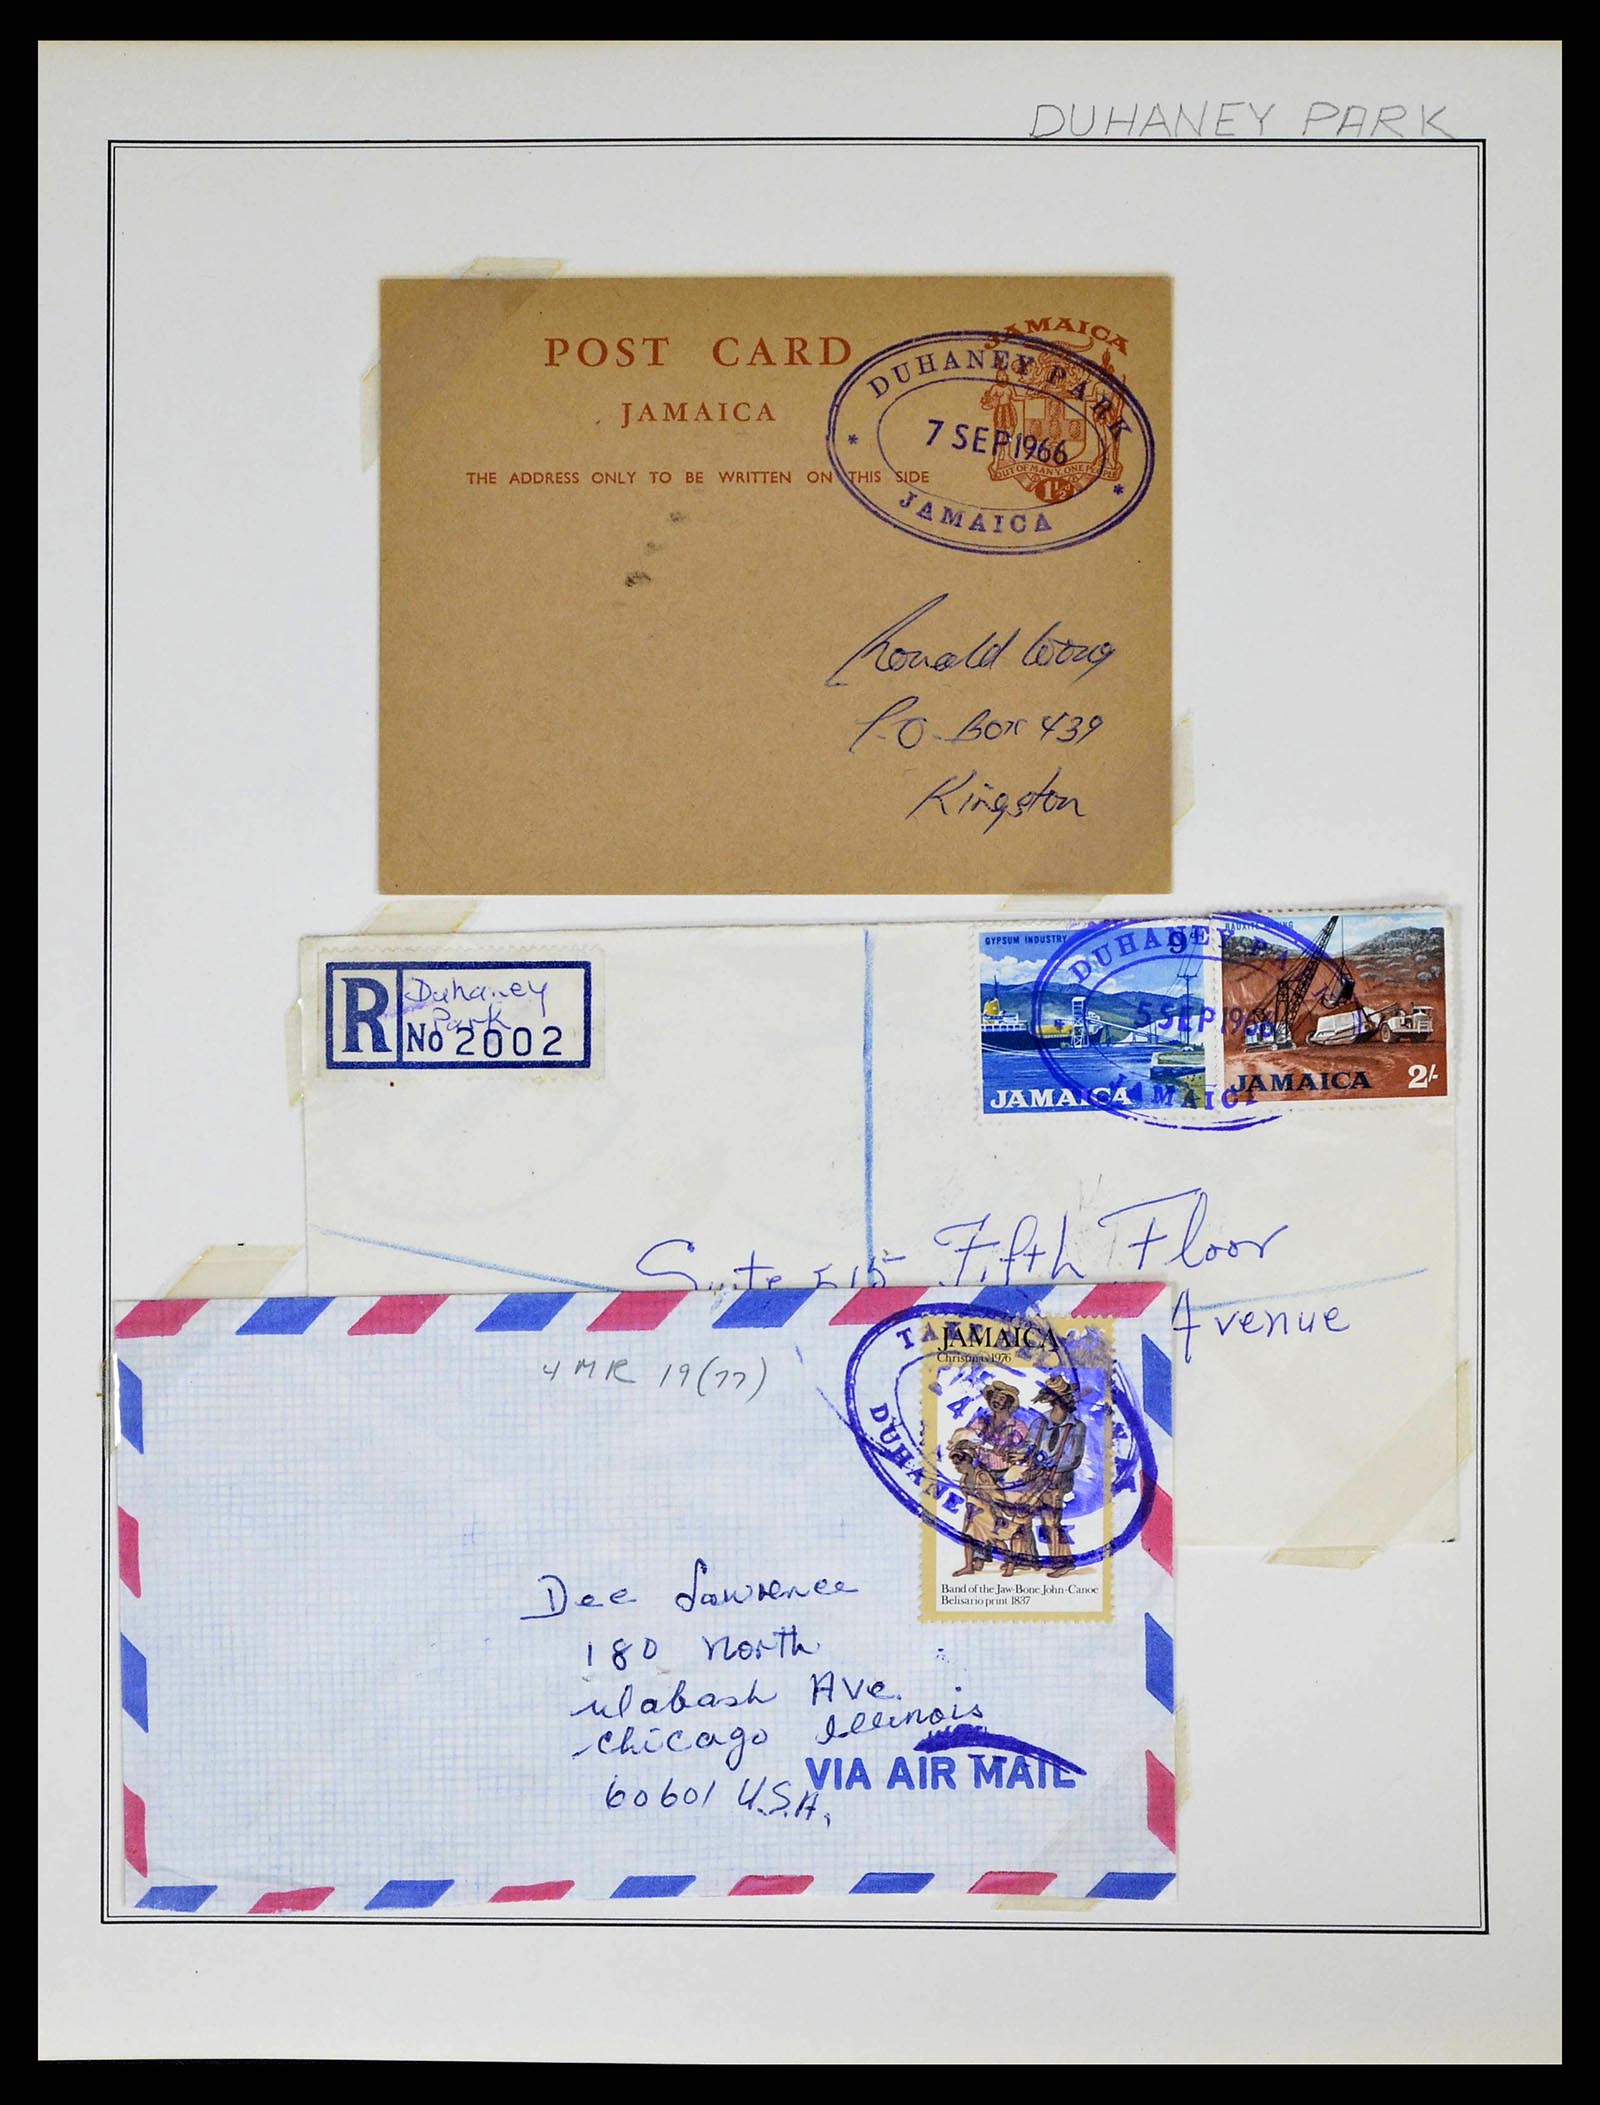 DUHANEY PARK
POST CARD
JAMAICA
THE ADDRESS ONLY TO BE WRITTEN ON THIS SIDE
JAMAICA
OUT OF MANY, ONE PEOPLE
1½d
DUHANEY PARK
7 SEP 1966
JAMAICA
Ronald Wong
P.O. Box 439
Kingston
R
Duhaney
Park
No 2002
GYPSUM INDUSTRY
9d
JAMAICA
BAUXITE MINING
JAMAICA 2/-
DUHANEY PA
5 SEP 1966
JAMAICA
Suite 515 Fifth Floor
Avenue
4 MR 19(77)
JAMAICA
Christmas 1976
Band of the Jaw-Bone John-Canoe
Belisario print 1837
DUHANEY PARK
Dee Lawrence
180 North
Wabash Ave.
Chicago Illinois
60601 U.S.A.
VIA AIR MAIL